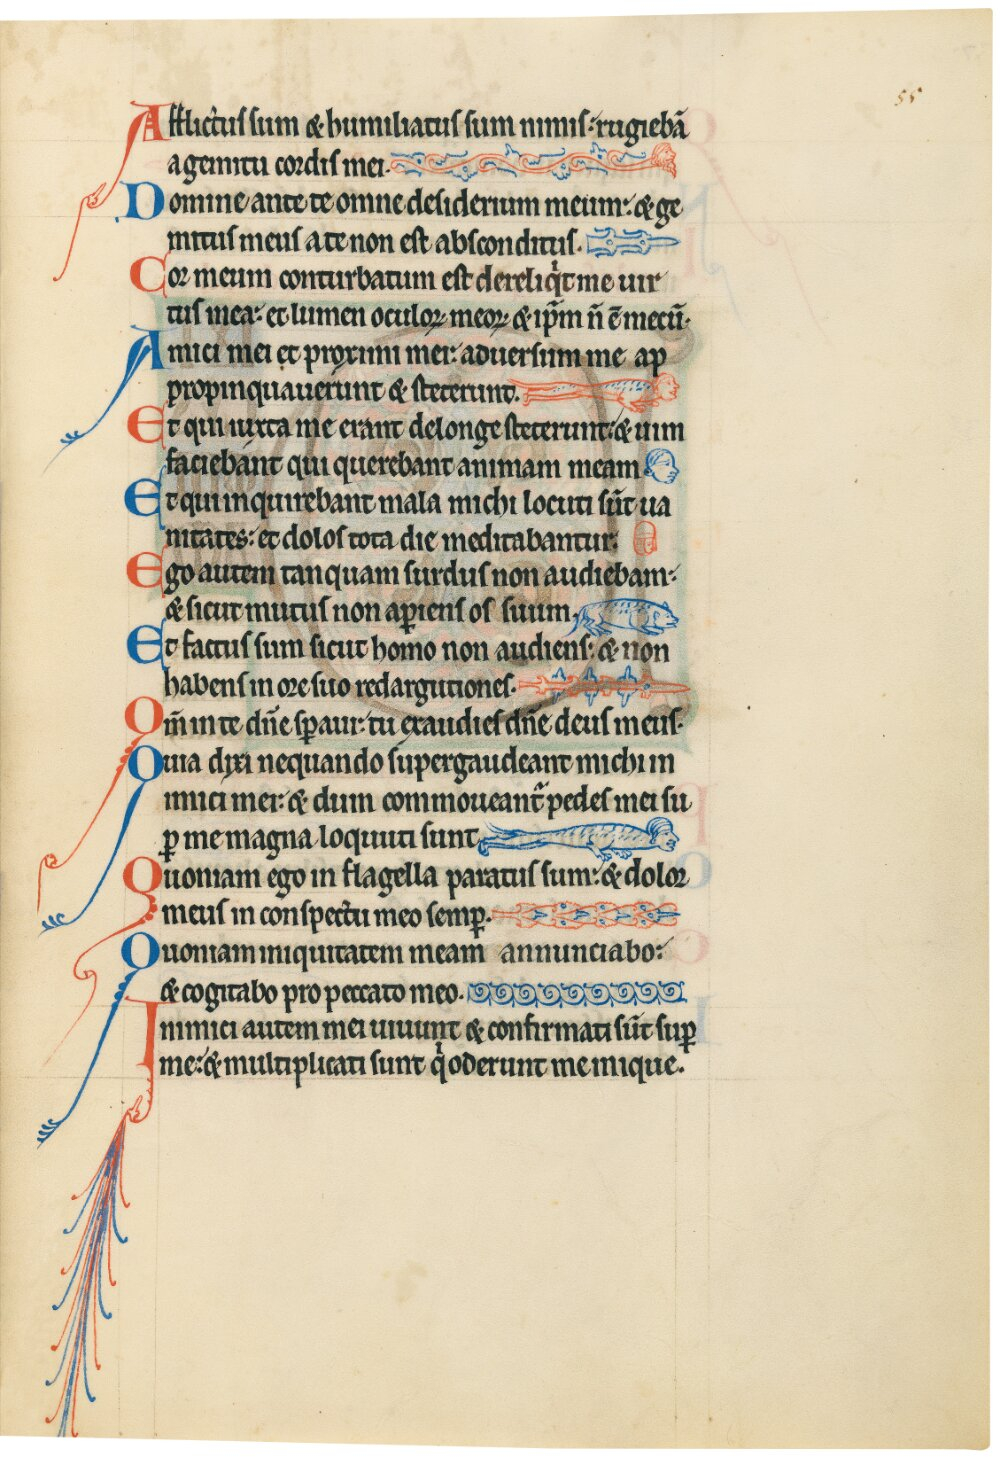 55
Afflictus sum & humiliatus sum nimis: rugiebā
a gemitu cordis mei.
Domine ante te omne desiderium meum: & ge
mitus meus a te non est absconditus.
Cor meum conturbatum est dereliq̇t me uir
tus mea: et lumen oculoꝝ meoꝝ & ip̄m n̄ ē mecū.
Amici mei et proximi mei: aduersum me ap
propinquauerunt & steterunt.
Et qui iuxta me erant de longe steterunt: & uim
faciebant qui querebant animam meam
Et qui inquirebant mala michi locuti sūt ua
nitates: et dolos tota die meditabantur.
Ego autem tanquam surdus non audiebam:
& sicut mutus non aꝑiens os suum.
Et factus sum sicut homo non audiens: & non
habens in ore suo redargutiones.
Qm̄ in te dn̄e sꝑaui: tu exaudies dn̄e deus meus.
Quia dixi nequando supergaudeant michi in
imici mei: & dum commoueant᷑ pedes mei su
ꝑ me magna loquuti sunt.
Quoniam ego in flagella paratus sum: & dolor
meus in conspectu meo semꝑ.
Quoniam iniquitatem meam annunciabo:
& cogitabo pro peccato meo.
Inimici autem mei uiuunt & confirmati sūt suꝑ
me: & multiplicati sunt q̇ oderunt me inique.